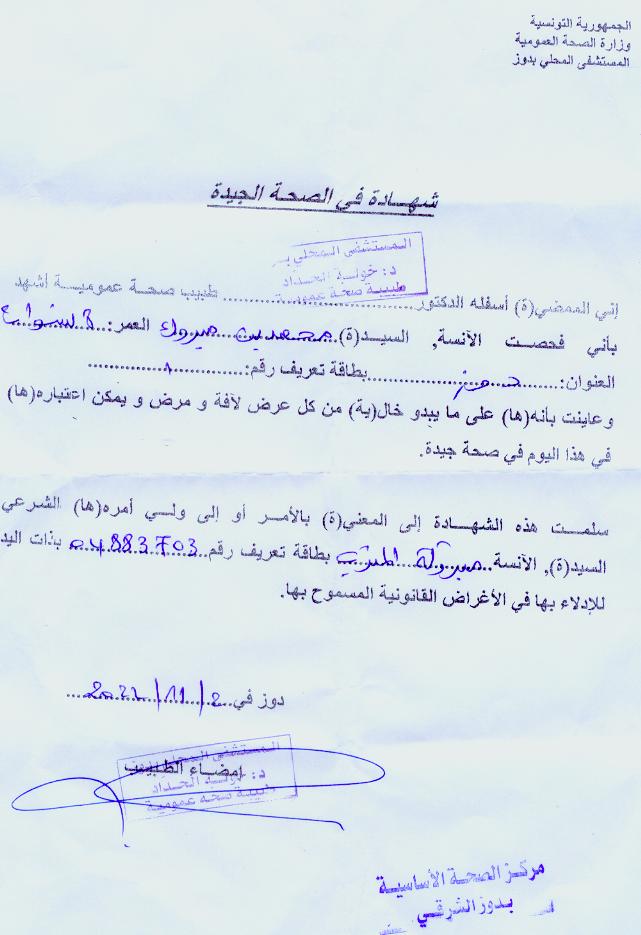 الجمهورية التونسية
وزارة الصحة العمومية
المستشفى المحلي بدوز
شهادة في الصحة الجيدة
المستشفى المحلي
د: خولة الحداد
طبيبة صحة عمومية
إني الممضي(ة) أسفله الدكتور.............................. طبيب صحة عمومية أشهد
بأني فحصت الآنسة, السيد(ة)..محمد بن مبروك العمر:
العنوان:........دوز..............بطاقة تعريف رقم:..........................
وعاينت بأنه(ها) على ما يبدو خال(ية) من كل عرض لآفة و مرض و يمكن اعتباره(ها)
في هذا اليوم في صحة جيدة.
سلمت هذه الشهادة إلى المعني(ة) بالأمر أو إلى ولي أمره(ها) الشرعي
السيد(ة), الآنسة..مبروكة بطاقة تعريف رقم..04883703 بذات اليد
للإدلاء بها في الأغراض القانونية المسموح بها.
دوز في
المستشفى المحلي
إمضاء الطبيب
الحداد
طبيبة صحة عمومية
مركز الصحة الأساسية
بدوز الشرقي